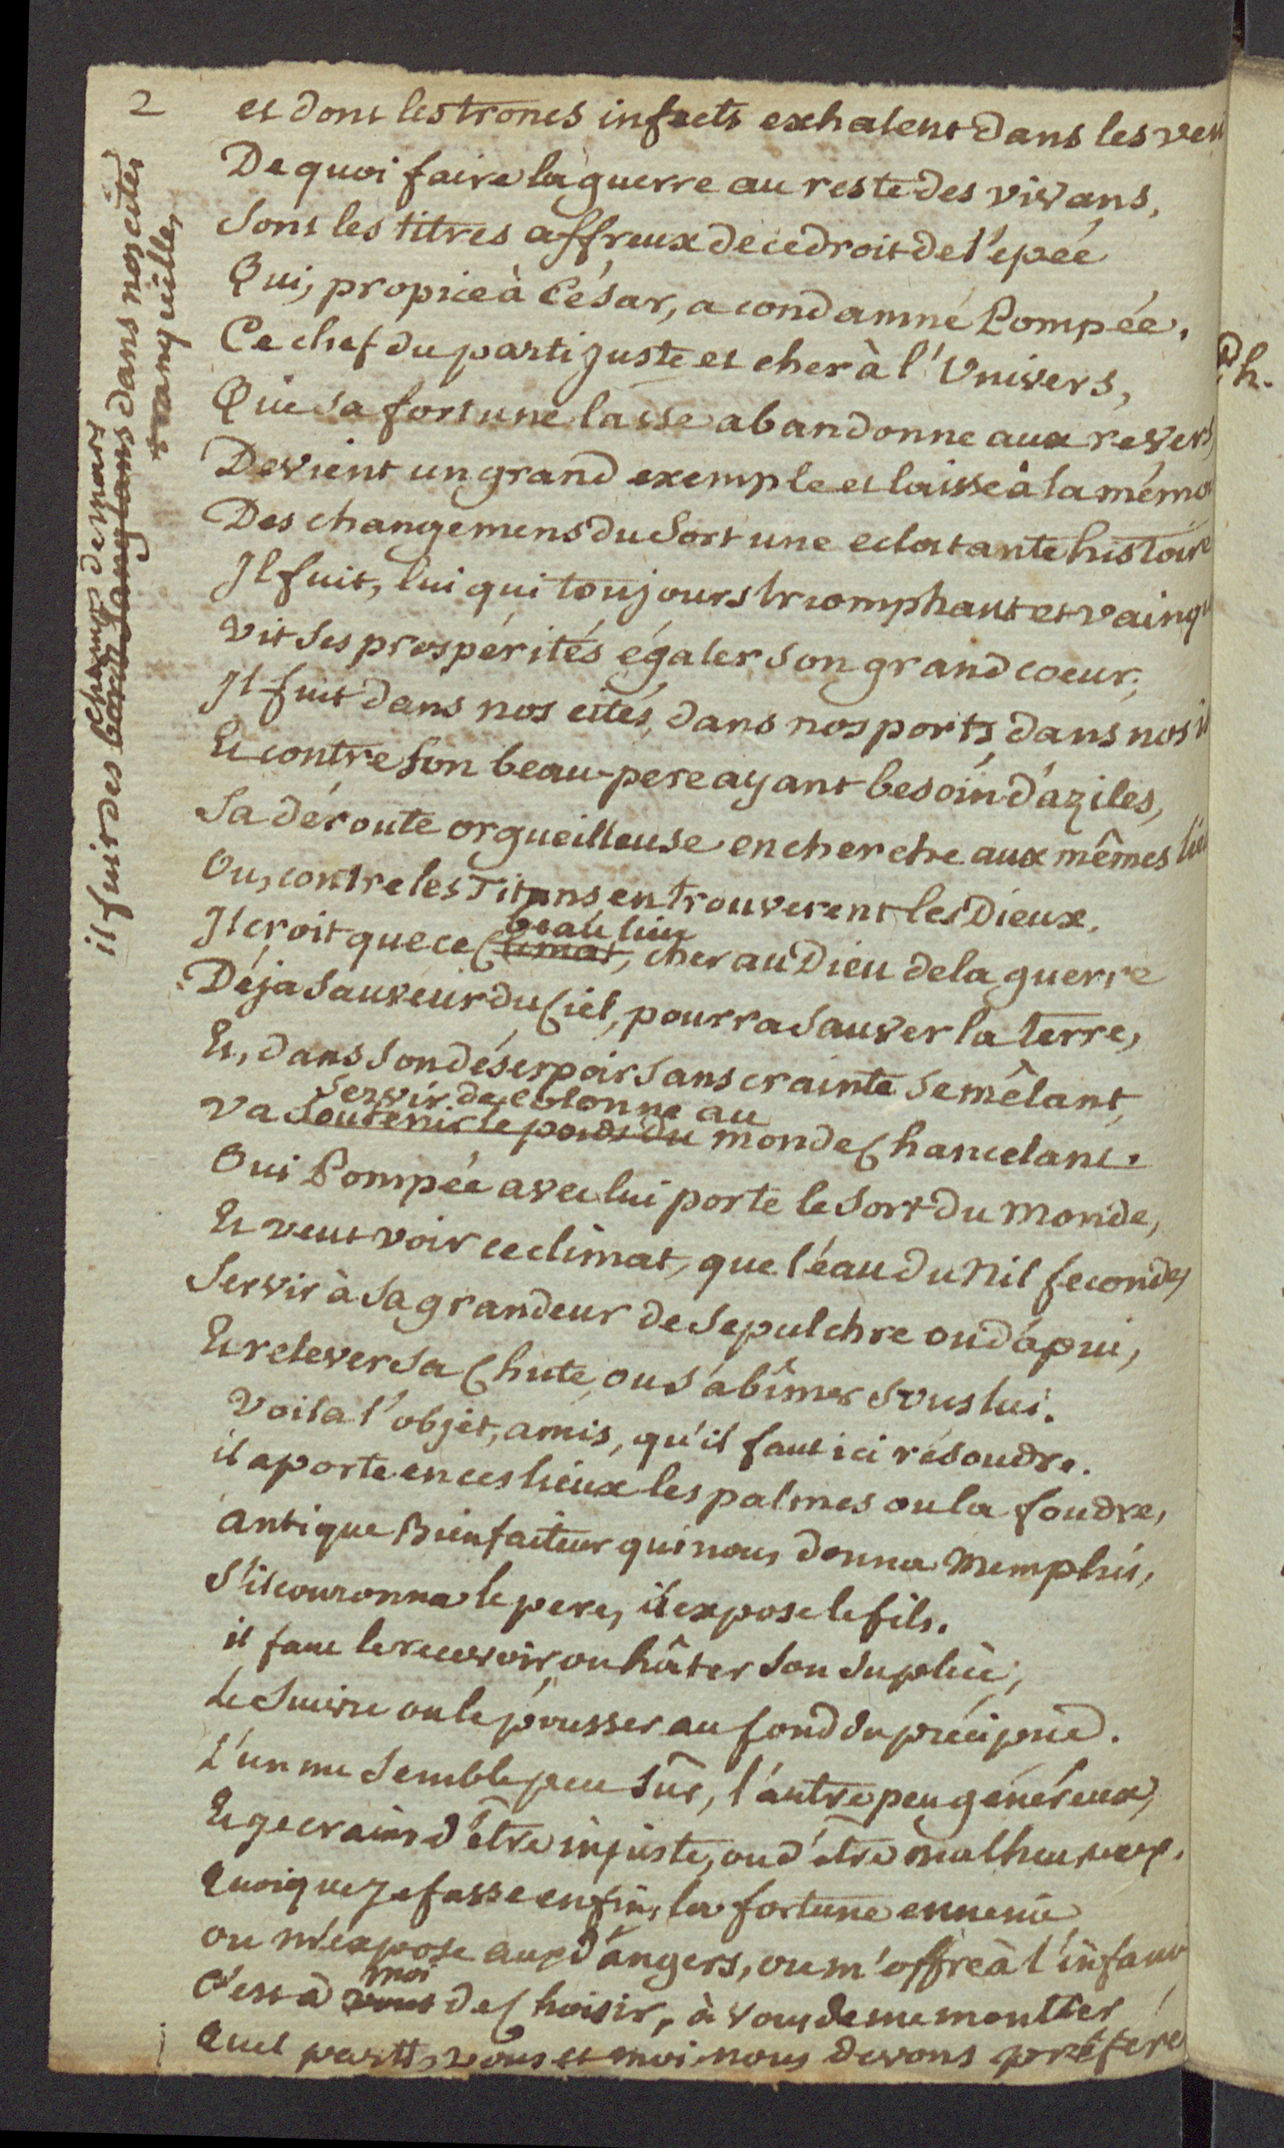 2
et dont les troncs infects exhalent dans les ven
De quoi faire la guerre au reste des vivans,
Sont les titres affreux de ce droit de l'épée
Qui, propice à César, a condamné Pompée.
Ce chef du parti juste et cher à l'Univers,
Que sa fortune lasse abandonne aux revers
Devient un grand exemple et laisse à la mémo
Des changemens du Sort une eclatante histoire
Il fuit, lui qui toujours triomphant et vainqu
vit ses prospérités égaler son grand coeur;
Il fuit dans nos cités, dans nos ports, dans nos
Et contre son beau-pere ayant besoin d'aziles,
Sa déroute orgueilleuse en cherche aux mêmes lieu
Ou, contre les Titans en trouverent les Dieux.
beau lieu
Il croit que ce climat, cher au Dieu de la guerre
Déja Sauveur du Ciel, pourra sauver la terre,
Et, dans son désespoir sans crainte se mêlant,
servir de colonne au
va soutenir le poids du monde Chancelant.
Oui Pompée avec lui porte le sort du monde,
Et veut voir ce climat, que l'eau du Nil feconde,
Servir à sa grandeur de sepulchre ou d'apui,
Et relever sa Chute, ou s'abîmer sous lui.
Voila l'objet, amis, qu'il faut ici résoudre.
il aporte en ces lieux les palmes ou la foudre,
antique Bienfaiteur qui nous donna Memphis,
S'il couronna le pere, il expose le fils.
il faut le recevoir, ou hâter son suplice,
Le suivre ou le pousser au fond du précipice.
L'un me semble peu sûr, l'autre peu généreux,
Et je crains d'être injuste, ou d'être malheureux.
Quoique je fasse enfin, la fortune ennemie
ou m'expose aux d'angers, ou m'offre à l'infam
moi
C'est à vous de Choisir, à vous de me montrer
Quel parti, vous et moi nous devons préfére
champs de mars
il fuit des bords sanglans dans nos cités
tranquilles